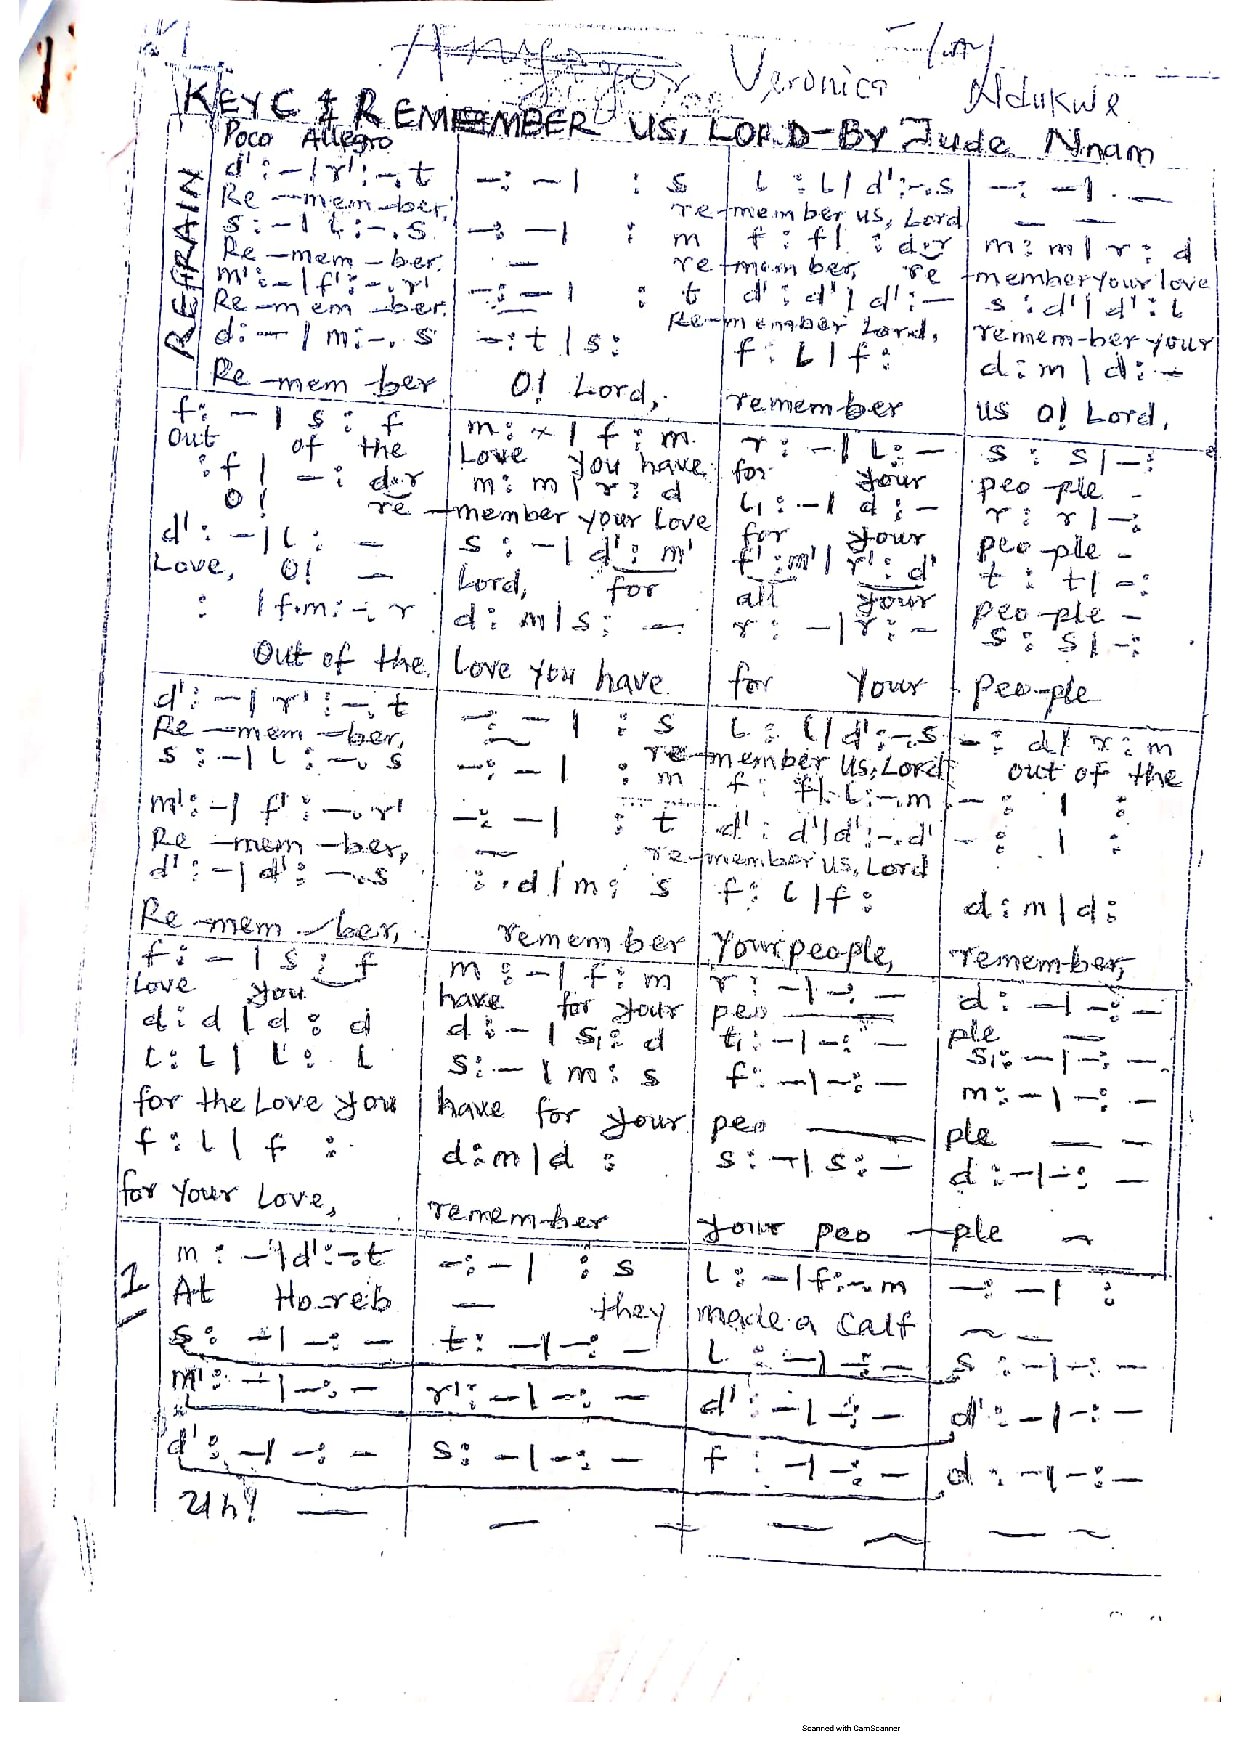 Veronica Adukwe
KEY C REMEMBER US, LORD-BY Jude Nnam
Poco Allegro
REFRAIN
d':-|r':-.t -:-| :s l:l|d':-.s -:-|
Re-mem-ber, re-member us, Lord
s:-|l:-.s -:-| :m f:f| :d.r m:m|r:d
Re-mem-ber. re-member, re-member your love
m':-|f':-.r' -:-| :t d':d'|d':- s:d'|d':l
Re-mem-ber. Re-member Lord, remem-ber your
d:-|m:-.s -:t|s: f:l|f: d:m|d:-
Re-mem ber O! Lord, remember us O! Lord,
f:-|s:f m:x|f:m r:-|l:- s:s|-:
Out of the Love you have for your peo-ple -
:f|-:d.r m:m|r:d l,:-|d:- r:r|-:
O! re-member your love for your peo-ple -
d':-|l:- s:-|d':m' f':m'|r':d' t:t|-:
Love, O! - Lord, for all your peo-ple -
: |f.m:-.r d:m|s:- r:-|r:- s:s|-:
Out of the love you have for your peo-ple
d':-|r':-.t -:-| :s l:l|d':-.s -:d|r:m
Re-mem-ber, re-member us, Lord out of the
s:-|l:-.s -:-| :m f:f|l:-.m -: | :
m':-|f':-.r' -:-| :t d':d'|d':-.d' -: | :
Re-mem-ber, re-member us, Lord
d':-|d':-.s :.d|m:s f:l|f: d:m|d:
Re-mem-ber, remember your people, remember,
f:-|s:f m:-|f:m r:-|-:- d:-|-:-
Love you have for your peo ple
d:d|d:d d:-|s,:d t,:-|-:- s,:-|-:-
l:l|l:l s:-|m:s f:-|-:- m:-|-:-
for the Love you have for your peo ple
f:l|f: d:m|d: s:-|s:- d:-|-:-
for your Love, remember your peo-ple
1
m:-|d':-.t -:-| :s l:-|f:-.m -:-| :
At Ho-reb they made a calf
s:-|-:- t:-|-:- l:-|-:- s:-|-:-
m':-|-:- r':-|-:- d':-|-:- d':-|-:-
d':-|-:- s:-|-:- f:-|-:- d:-|-:-
Uh!
Scanned with CamScanner